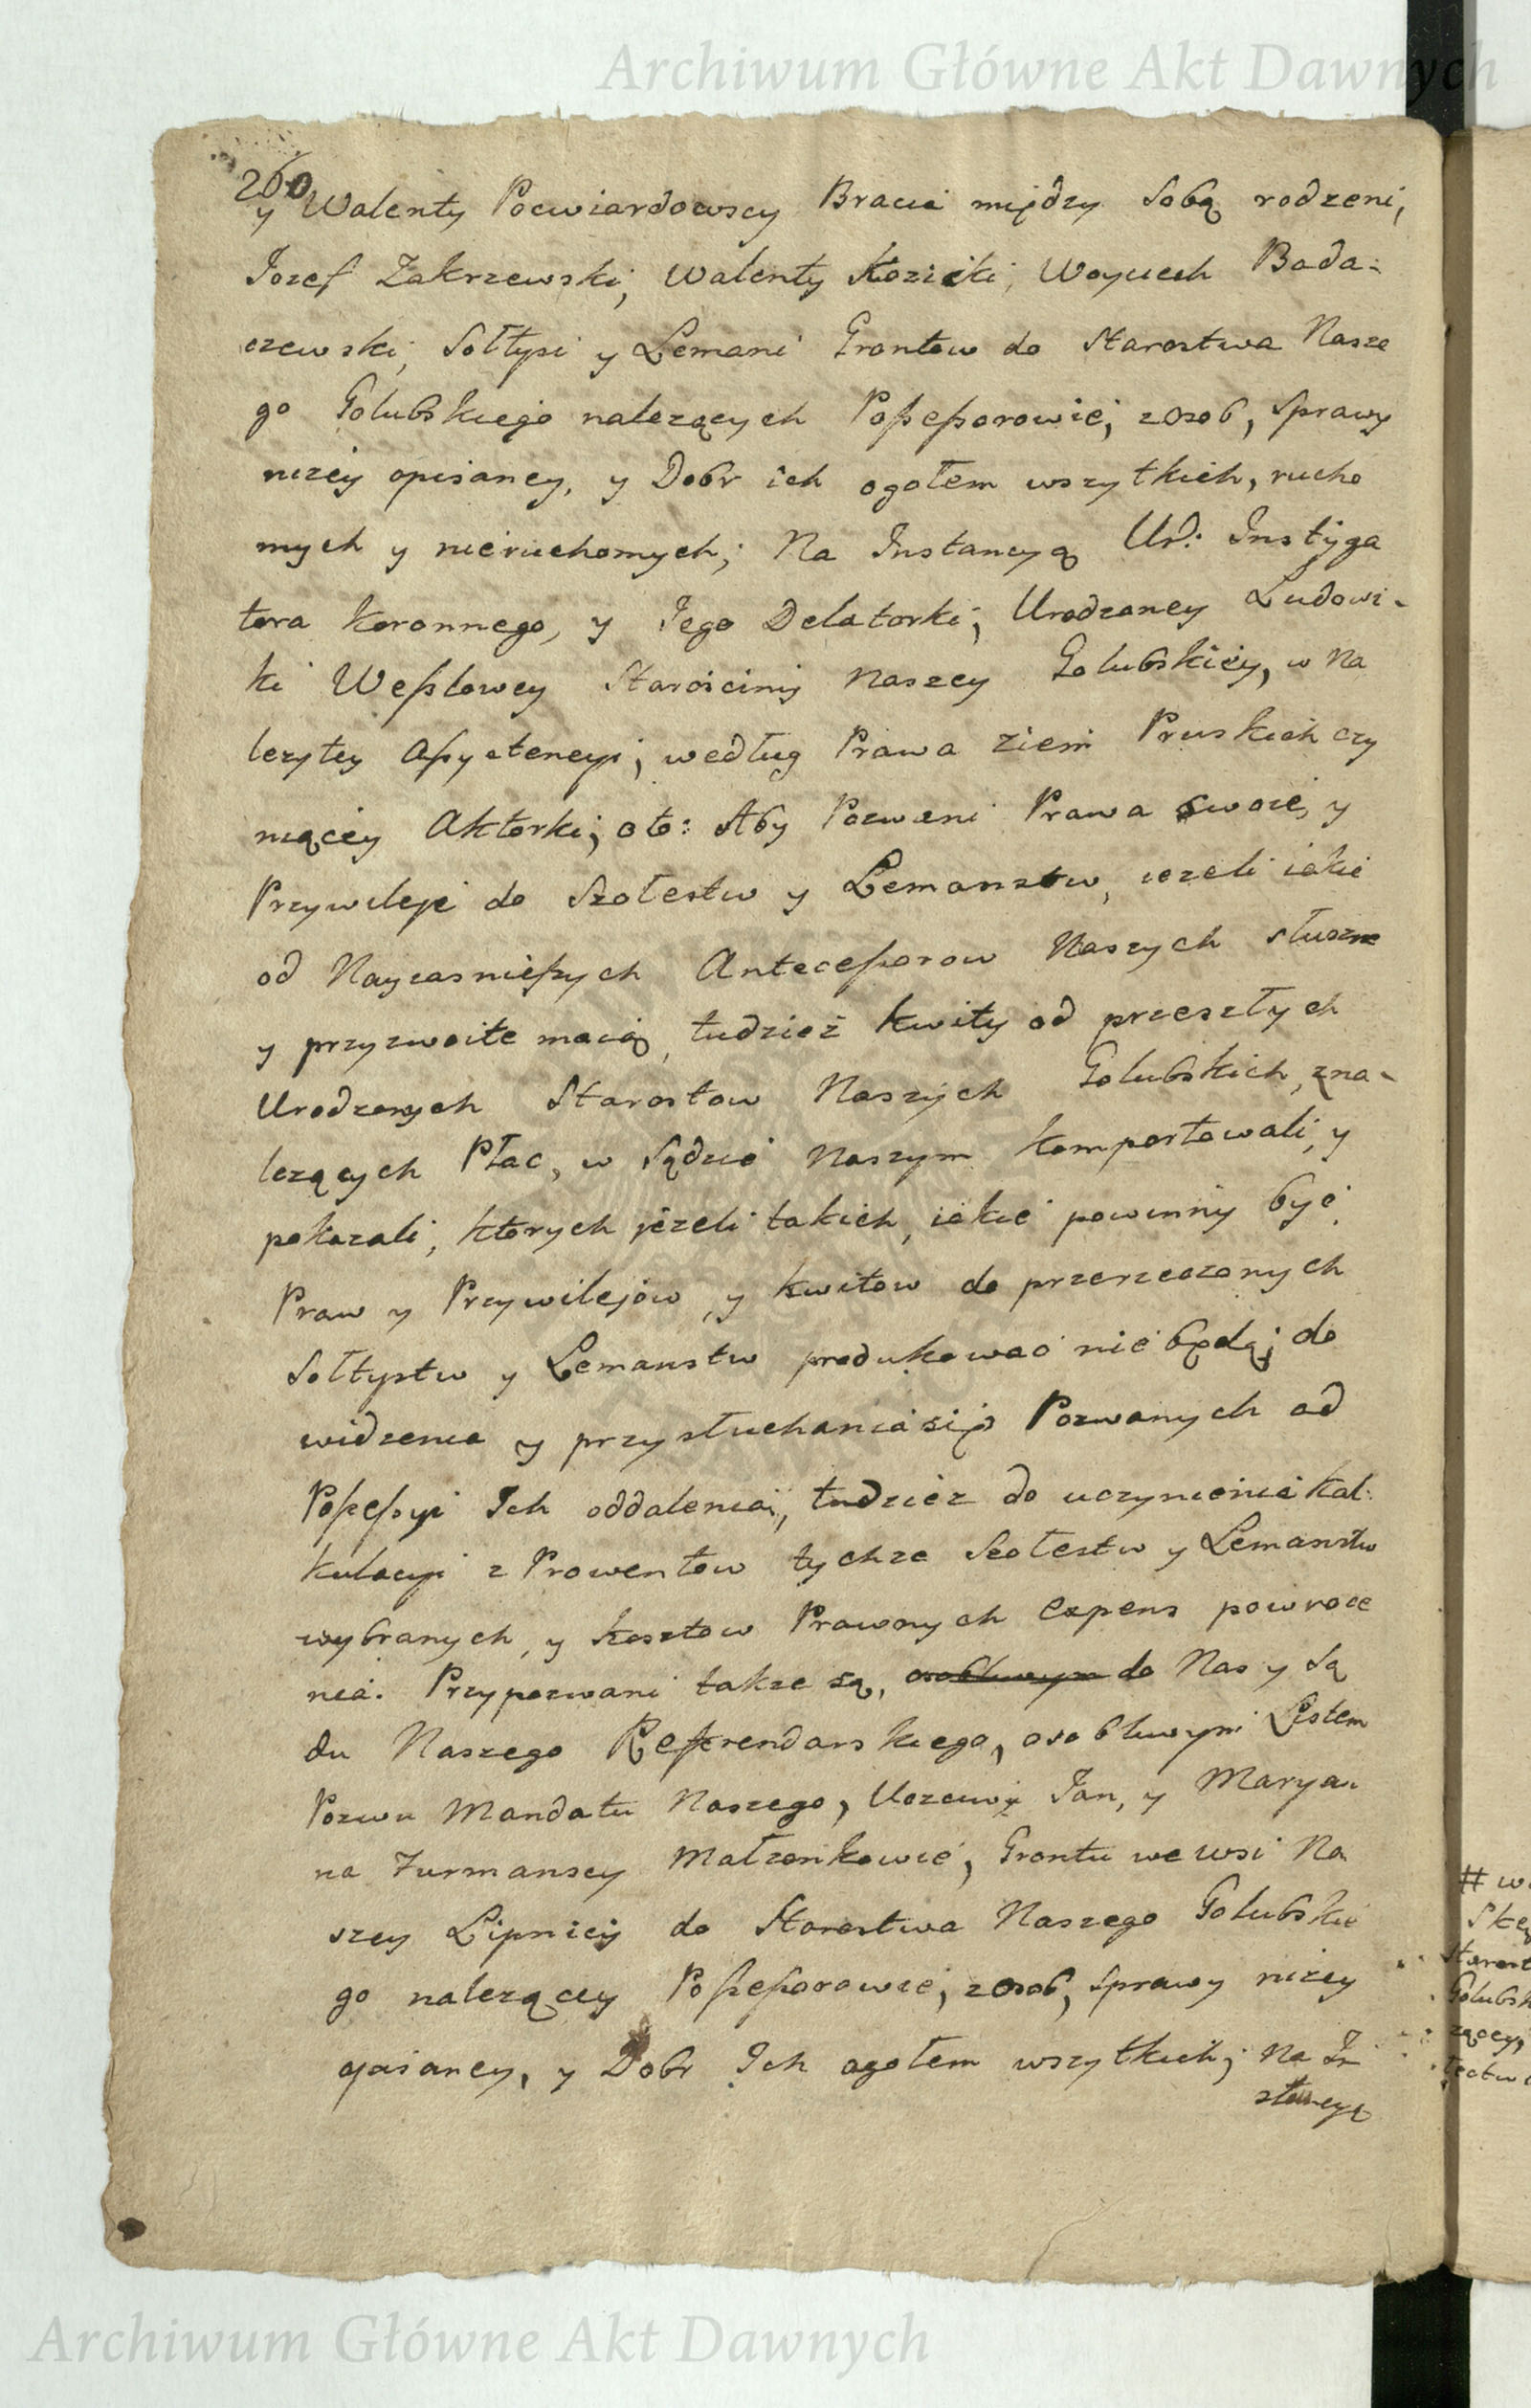 Archiwum Główne Akt Dawnych
260
y Walenty Pocwiardowscy Bracia między Sobą rodzeni,
Jozef Zakrzewski, Walenty Kozicki, Woyciech Bada-
czewski, Sołtysi y Lemani Grontow do Starostwa Nasze
go Golubskiego nalezących Possessorowie, z osob, Sprawy
nizey opisaney, y Dobr ich ogołem wszytkich, rucho
mych y nieruchomych; Na Instancyą Ur: Instyga
tora Koronnego, y Jego Delatorki, Urodzoney Ludowi-
ki Wesslowey Starościny Naszey Golubskiey, w na
lezytey Assystencyi, według Prawa ziem Pruskich czy
niącey Aktorki; oto: Aby Pozwani Prawa swoie, y
Przywileje do Szołestw y Lemanstw, iezeli iakie
od Nayiasnieszych Antecessorow Naszych słuszne
y przyzwoite maią, tudziez Kwity od przeszłych
Urodzonych Starostow Naszych Golubskich, z na-
lezących Płac, w Sądzie Naszym komportowali, y
pokazali, ktorych jezeli takich, iakie powinny być,
Praw y Przywilejow, y kwitow do przerzeczonych
Sołtystw y Lemanstw produkować nie będą; do
widzenia y przysłuchania się Pozwanych od
Possessyi Ich oddalenia, tudziez do uczynienia kal-
kulacyi z Prowentow tychze Szołestw y Lemanstw
wybranych, y kosztow Prawnych expens powroce
nia. Przypozwani takze są, osobliwym do Nas y Są
du Naszego Referendarskiego, osobliwym Listem
Pozwu Mandatu Naszego, Uczciwi Jan, y Marya-
na Furmanscy Małzonkowie, Grontu we wsi Na
szey Lipnicy do Starostwa Naszego Golubskie
go nalezącey Possessorowie, z osob, Sprawy nizey
opisaney, y Dobr Ich ogołem wszytkich; Na In
stancyą
# w
Ske
Starost
Golubsk
zącey,
Archiwum Główne Akt Dawnych